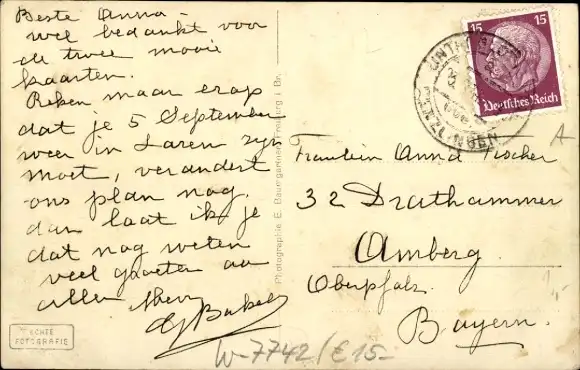 Beste Anna –
wel bedankt voor
de twee mooie
kaarten.
Reken maar erop
dat je 5 September
weer in Laren zijn
moet, verandert
ons plan nog,
dan laat ik je
dat nog weten
veel groeten aan
allen
ECHTE
FOTOGRAFIE
Photographie E. Baumgartner, Freiburg i. Br.
15 15
Deutsches Reich
Fräulein Anna Fischer
32 Drathammer
Amberg.
Oberpfalz.
Bayern.
A
1,-
W-7742/€15-